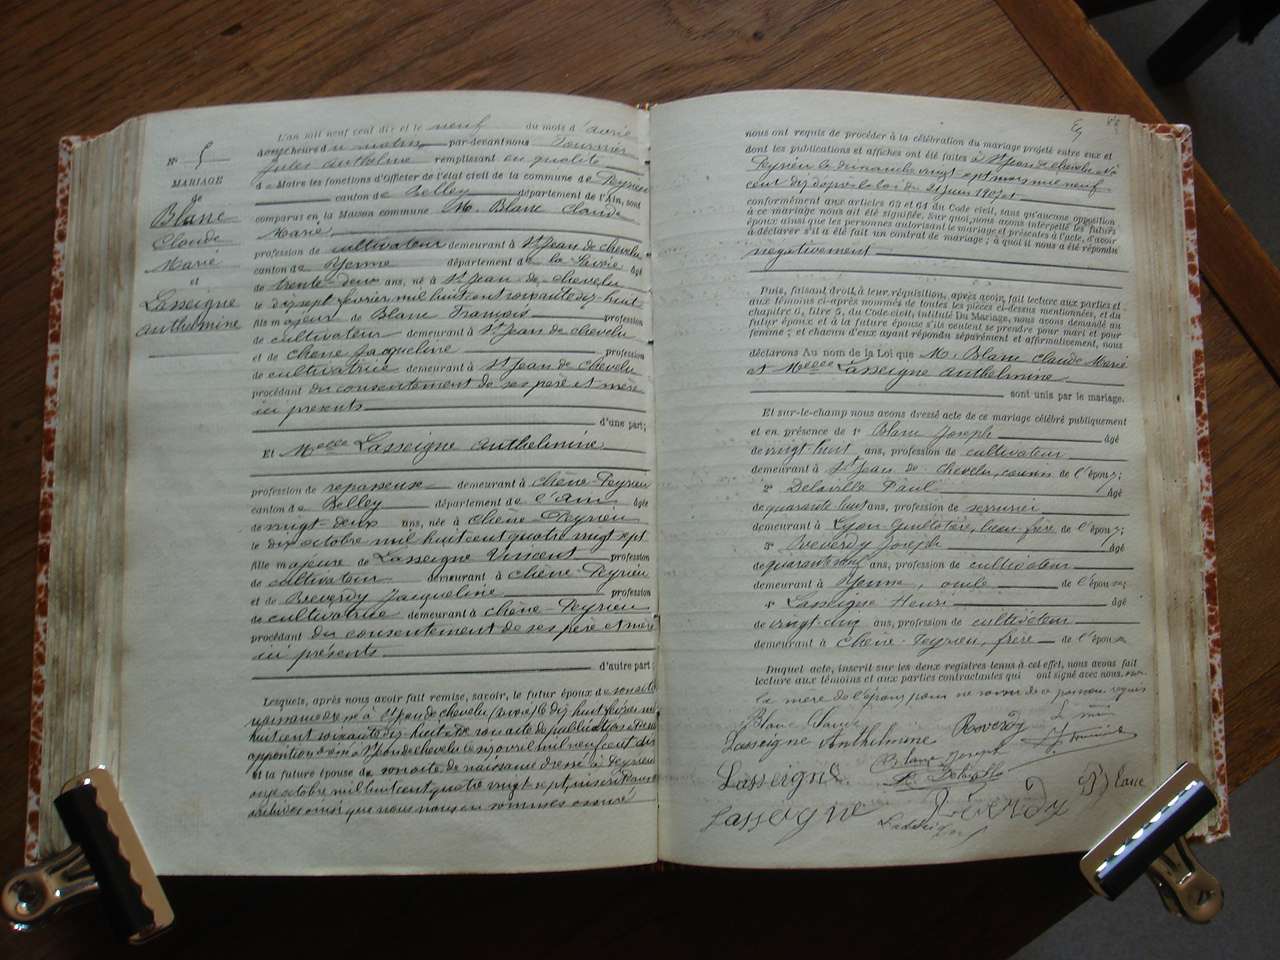 N° 5
MARIAGE
de
Blanc
Claude
Marié
et
Lasseigne
Anthelmine
L'an mil neuf cent dix et le neuf du mois d'avril
à onze heures du matin par-devant nous Fournier
Jules Anthelme remplissant en qualité
de Maire les fonctions d'Officier de l'état civil de la commune de Peyrieu
canton de Belley département de l'Ain, sont
comparus en la Maison commune M. Blanc Claude
Marié
profession de cultivateur demeurant à St Jean de chevelu
canton de Yenne département de la Savoie âgé
de trente-deux ans, né à St Jean de chevelu
le dix sept février mil huit cent soixante dix huit
fils majeur de Blanc François profession
de cultivateur demeurant à St Jean de chevelu
et de chêne Jacqueline profession
de cultivatrice demeurant à St Jean de chevelu
procédant du consentement de ses père et mère
ici présents
d'une part;
Et Melle Lasseigne Anthelmine
profession de repasseuse demeurant à chêne-Peyrieu
canton de Belley département de l'Ain âgée
de vingt-deux ans, née à chêne-Peyrieu
le dix octobre mil huit cent quatre vingt sept
fille majeure de Lasseigne Vincent profession
de cultivateur demeurant à chêne-Peyrieu
et de Reverdy Jacqueline profession
de cultivatrice demeurant à chêne-Peyrieu
procédant du consentement de ses père et mère
ici présents
d'autre part;
Lesquels, après nous avoir fait remise, savoir, le futur époux de son acte
de naissance dressé à St Jean de chevelu (Savoie) le dix huit février mil
huit cent soixante dix huit de son acte de publication et de non
opposition dressé à St Jean de chevelu le six avril mil neuf cent dix
et la future épouse de son acte de naissance dressé à Peyrieu
onze octobre mil huit cent quatre vingt sept, inscrit dans nos
archives ainsi que nous nous en sommes assuré
nous ont requis de procéder à la célébration du mariage projeté entre eux et
dont les publications et affiches ont été faites à St Jean de chevelu et à
Peyrieu le dimanche vingt sept mars mil neuf
cent dix d'après la loi du 21 juin 1907 et
conformément aux articles 63 et 64 du Code civil, sans qu'aucune opposition
à ce mariage nous ait été signifiée. Sur quoi, nous avons interpellé les futurs
époux ainsi que les personnes autorisant le mariage et présentes à l'acte, d'avoir
à déclarer s'il a été fait un contrat de mariage; à quoi il nous a été répondu
négativement
Puis, faisant droit à leur réquisition, après avoir fait lecture aux parties et
aux témoins ci-après nommés de toutes les pièces ci-dessus mentionnées, et du
chapitre 6, titre 5, du Code civil, intitulé Du Mariage, nous avons demandé au
futur époux et à la future épouse s'ils veulent se prendre pour mari et pour
femme; et chacun d'eux ayant répondu séparément et affirmativement, nous
déclarons Au nom de la Loi que M. Blanc Claude Marié
et Melle Lasseigne Anthelmine
sont unis par le mariage.
Et sur-le-champ nous avons dressé acte de ce mariage célébré publiquement
et en présence de 1° Blanc Joseph âgé
de vingt-huit ans, profession de cultivateur
demeurant à St Jean de chevelu, cousin de l'époux;
2° Delaville Paul âgé
de quarante huit ans, profession de serrurier
demeurant à Lyon Guillotière, beau frère de l'époux;
3° Reverdy Joseph âgé
de quarante neuf ans, profession de cultivateur
demeurant à Yenne, oncle de l'épouse;
4° Lasseigne Henri âgé
de vingt-cinq ans, profession de cultivateur
demeurant à Chêne-Peyrieu, frère de l'épouse
Duquel acte, inscrit sur les deux registres tenus à cet effet, nous avons fait
lecture aux témoins et aux parties contractantes qui ont signé avec nous, non
la mère de l'époux pour ne savoir de ce
Blanc Claude
Lasseigne Anthelmine Reverdy
Blanc Joseph
Lasseigne
Lasseigne Reverdy
Blanc